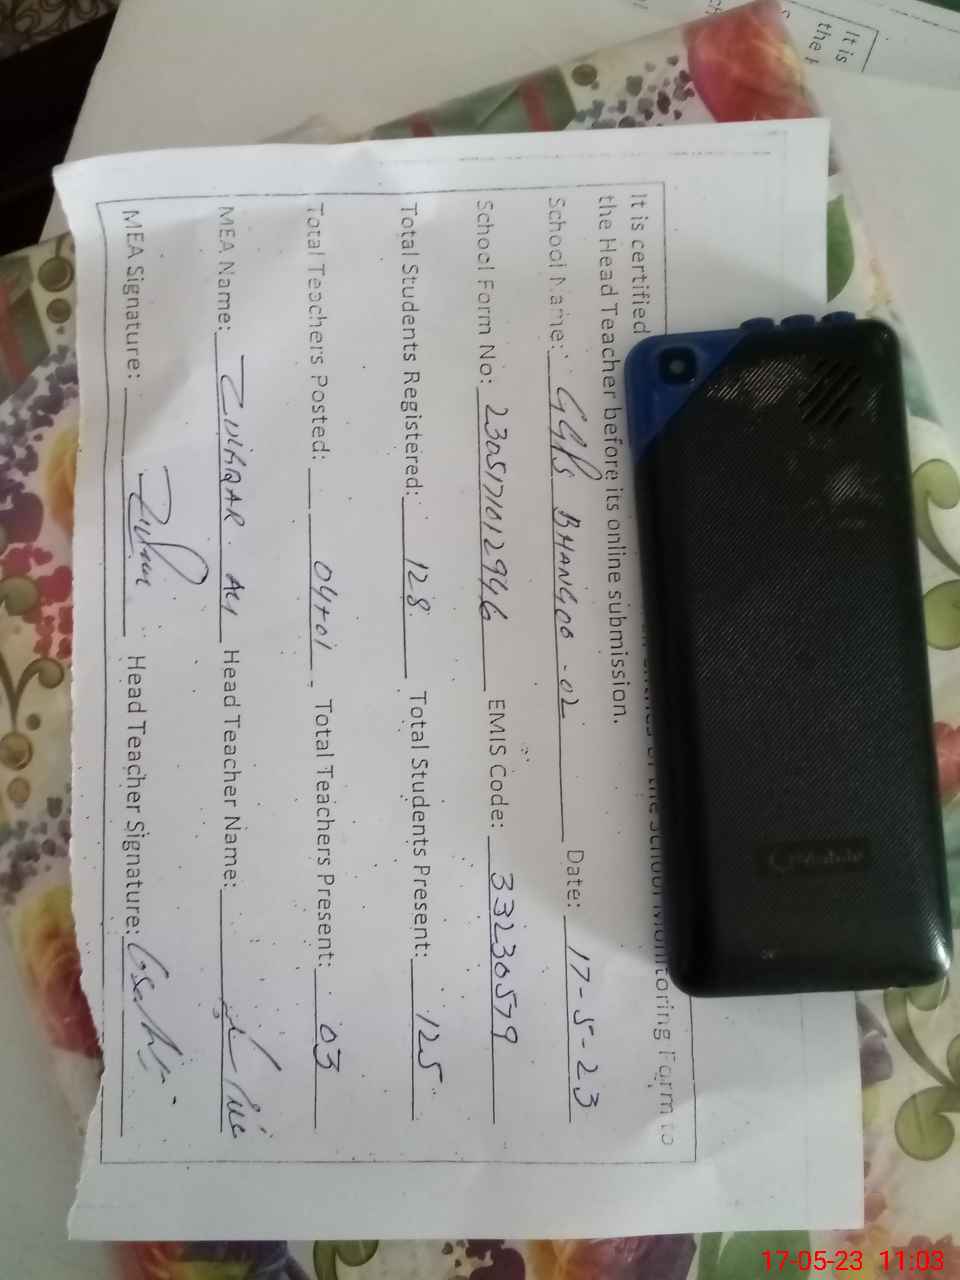 It is
the
It is certified
School Monitoring Form to
the Head Teacher before its online submission.
School Name: GGPS BHANGOO-02 Date: 17-5-23
School Form No: 2305171012946 EMIS Code: 33230579
Total Students Registered: 128 Total Students Present: 125
Total Teachers Posted: 04+01, Total Teachers Present: 03
MEA Name: ZULFIQAR ALI Head Teacher Name:
MEA Signature: Head Teacher Signature:
QMobile
17-05-23 11:03